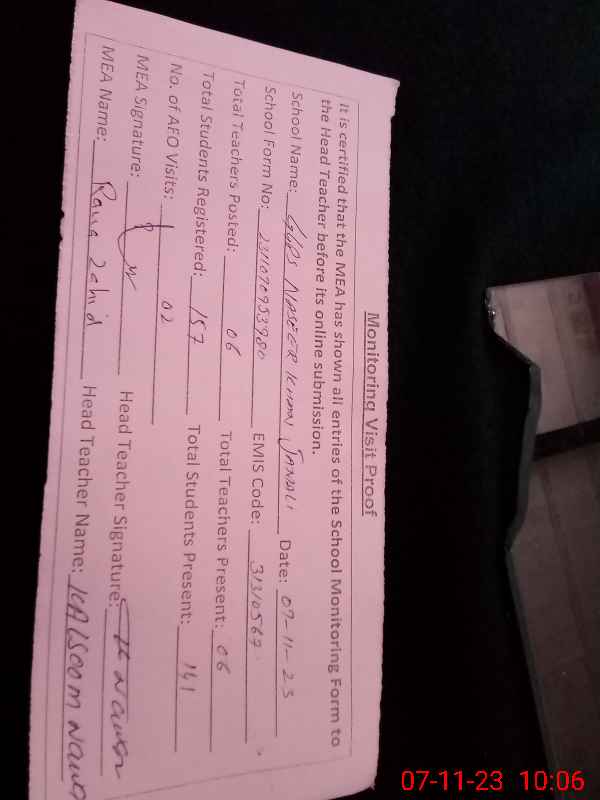 Monitoring Visit Proof
It is certified that the MEA has shown all entries of the School Monitoring Form to
the Head Teacher before its online submission.
School Name: GGPS NASEER KHAN JANDLI Date: 07-11-23
School Form No: EMIS Code: 31310569
Total Teachers Posted: 06 Total Teachers Present: 06
Total Students Registered: 157 Total Students Present: 141
No. of AEO Visits: 02
MEA Signature: Head Teacher Signature:
MEA Name: Rana Zahid Head Teacher Name: KALSOOM Nawa
07-11-23 10:06